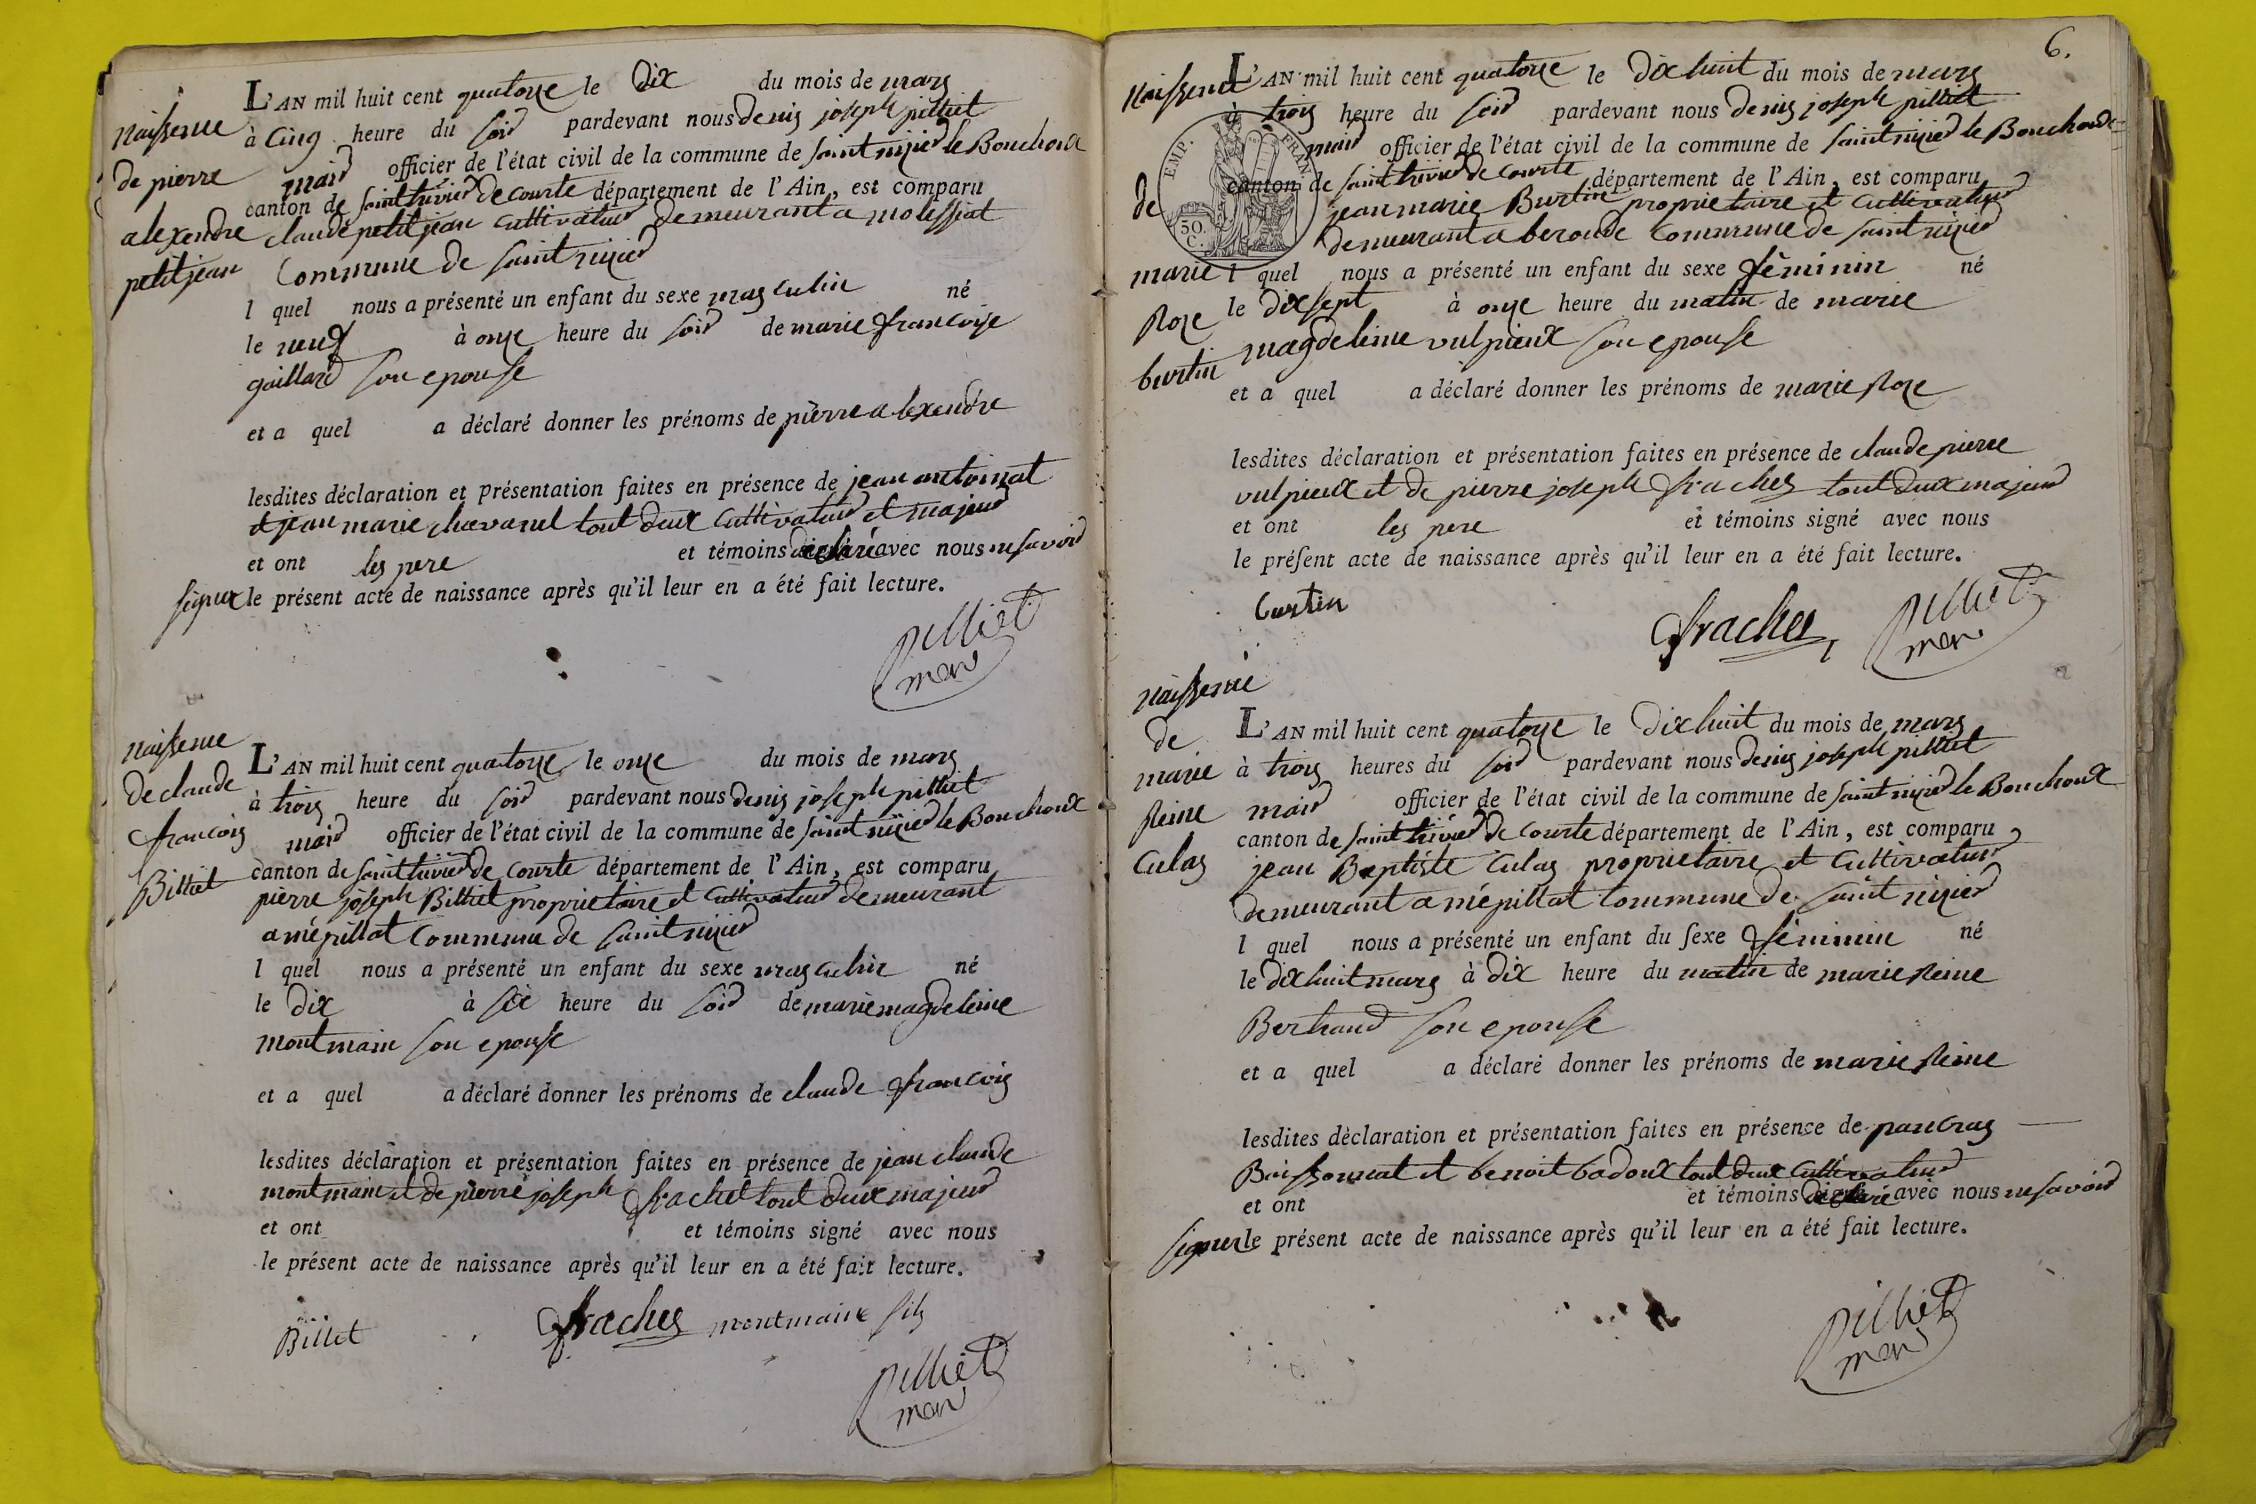 naissence
de pierre
alexendre
petitjean
L'AN mil huit cent quatorze le Dix du mois de mars
à Cinq heure du soir pardevant nous denis joseph pilliet
maire officier de l'état civil de la commune de saint nizier le Bouchoux
canton de saint trivier de courte département de l'Ain, est comparu
claude petitjean cultivateur demeurant a molessiat
Commune de saint nizier
l quel nous a présenté un enfant du sexe masculin né
le neuf à onze heure du soir de marie francoise
gaillard son epouse
et a quel a déclaré donner les prénoms de pierre alexendre
lesdites déclaration et présentation faites en présence de jean antoinat
et jean marie chavanel tout deux cultivateur et majeur
et ont les pere et témoins déclaré avec nous ne savoir
signer le présent acte de naissance après qu'il leur en a été fait lecture.
pilliet
maire
naissence
de claude
francois
Billiet
L'AN mil huit cent quatorze le onze du mois de mars
à trois heure du soir pardevant nous denis joseph pilliet
maire officier de l'état civil de la commune de saint nizier le Bouchoux
canton de saint trivier de courte département de l'Ain, est comparu
pierre joseph Billiet proprietaire et cultivateur demeurant
a mépillat Commune de saint nizier
l quel nous a présenté un enfant du sexe masculin né
le dix à six heure du soir de marie magdeleine
montmain son epouse
et a quel a déclaré donner les prénoms de claude francois
lesdites déclaration et présentation faites en présence de jean claude
montmain et de pierre joseph frachet tout deux majeur
et ont et témoins signé avec nous
le présent acte de naissance après qu'il leur en a été fait lecture.
Billet fraches montmain fils
pilliet
maire
6.
naissence
de
marie
Roze
burtin
EMP. FRAN.
50. C.
L'AN mil huit cent quatorze le dix huit du mois de mars
à trois heure du soir pardevant nous denis joseph pilliet
maire officier de l'état civil de la commune de saint nizier le Bouchoux
canton de saint trivier de courte département de l'Ain, est comparu
jean marie Burtin proprietaire et cultivateur
demeurant a beroude Commune de saint nizier
l quel nous a présenté un enfant du sexe féminin né
le dix sept à onze heure du matin de marie
magdeleine vulpieux son epouse
et a quel a déclaré donner les prénoms de marie Roze
lesdites déclaration et présentation faites en présence de claude pierre
vulpieux et de pierre joseph fraches tout deux majeur
et ont les pere et témoins signé avec nous
le présent acte de naissance après qu'il leur en a été fait lecture.
burtin fraches pilliet
maire
naissence
de
marie
Reine
Culas
L'AN mil huit cent quatorze le dix huit du mois de mars
à trois heures du soir pardevant nous denis joseph pilliet
maire officier de l'état civil de la commune de saint nizier le Bouchoux
canton de saint trivier de courte département de l'Ain, est comparu
jean Baptiste Culas proprietaire et Cultivateur
demeurant a mépillat Commune de saint nizier
l quel nous a présenté un enfant du sexe féminin né
le dix huit mars à dix heure du matin de marie Reine
Bertrand son epouse
et a quel a déclaré donner les prénoms de marie Reine
lesdites déclaration et présentation faites en présence de pancras
Buissonnat et benoit badoux tout deux cultivateur
et ont et témoins déclaré avec nous ne savoir
signer le présent acte de naissance après qu'il leur en a été fait lecture.
pilliet
maire